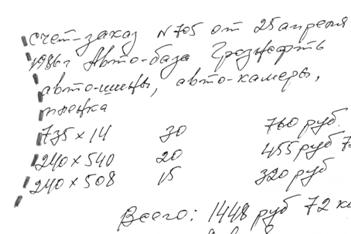 счет-заказ N 705 от 25 апреля
1986г Авто-база Грознефть
авто-шины, авто-камеры,
735 x 14 30 760 руб.
240 x 540 20 455 руб 7
240 x 508 15 320 руб
Всего: 1448 руб 72 к